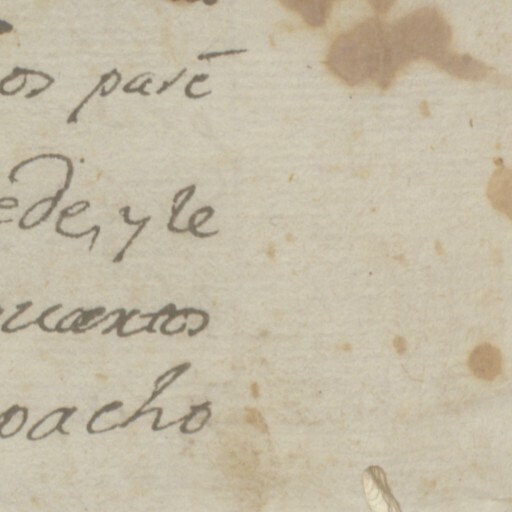 os parē
ede, y le
uartos
oacho